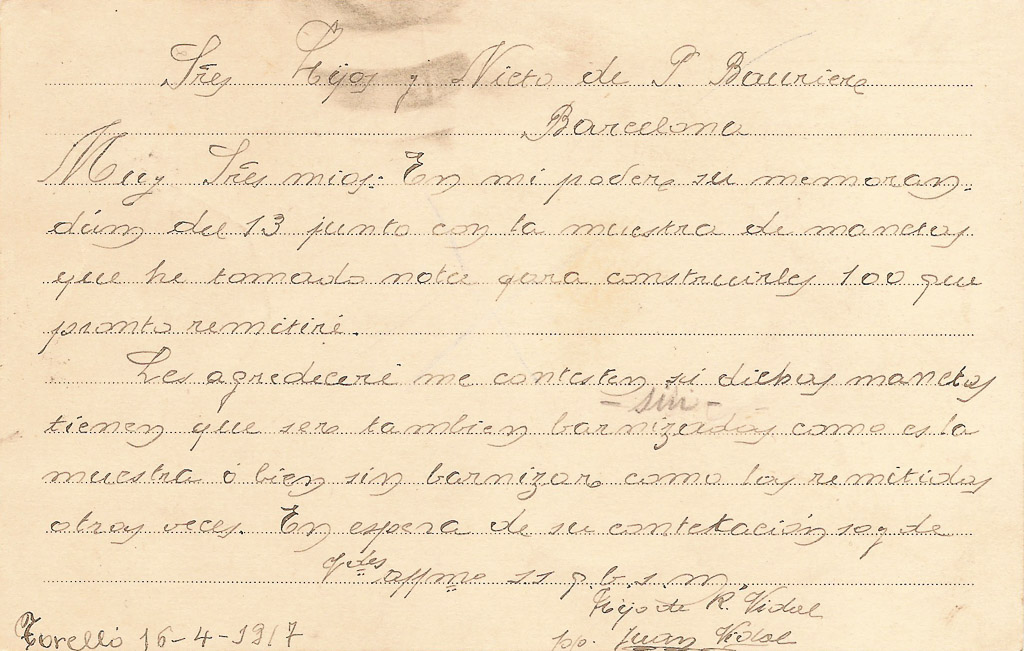 Sres Hijos y Nieto de P. Baurier
Barcelona
Muy Sres mios: En mi poder su memoran-
dúm del 13 junto con la muestra de manetas
que he tomado nota para construirles 100 que
pronto remitiré.
Les agredeceré me contesten si dichas manetas
- sin -
tienen que ser tambien barnizadas como es la
muestra ó bien sin barnizar como las remitidas
otras veces. En espera de su contestación soy de
Vdes affmo ss q.b.s.m.
Hijo de R. Vidal
Torelló 16-4-1917 pp. Juan Vidal